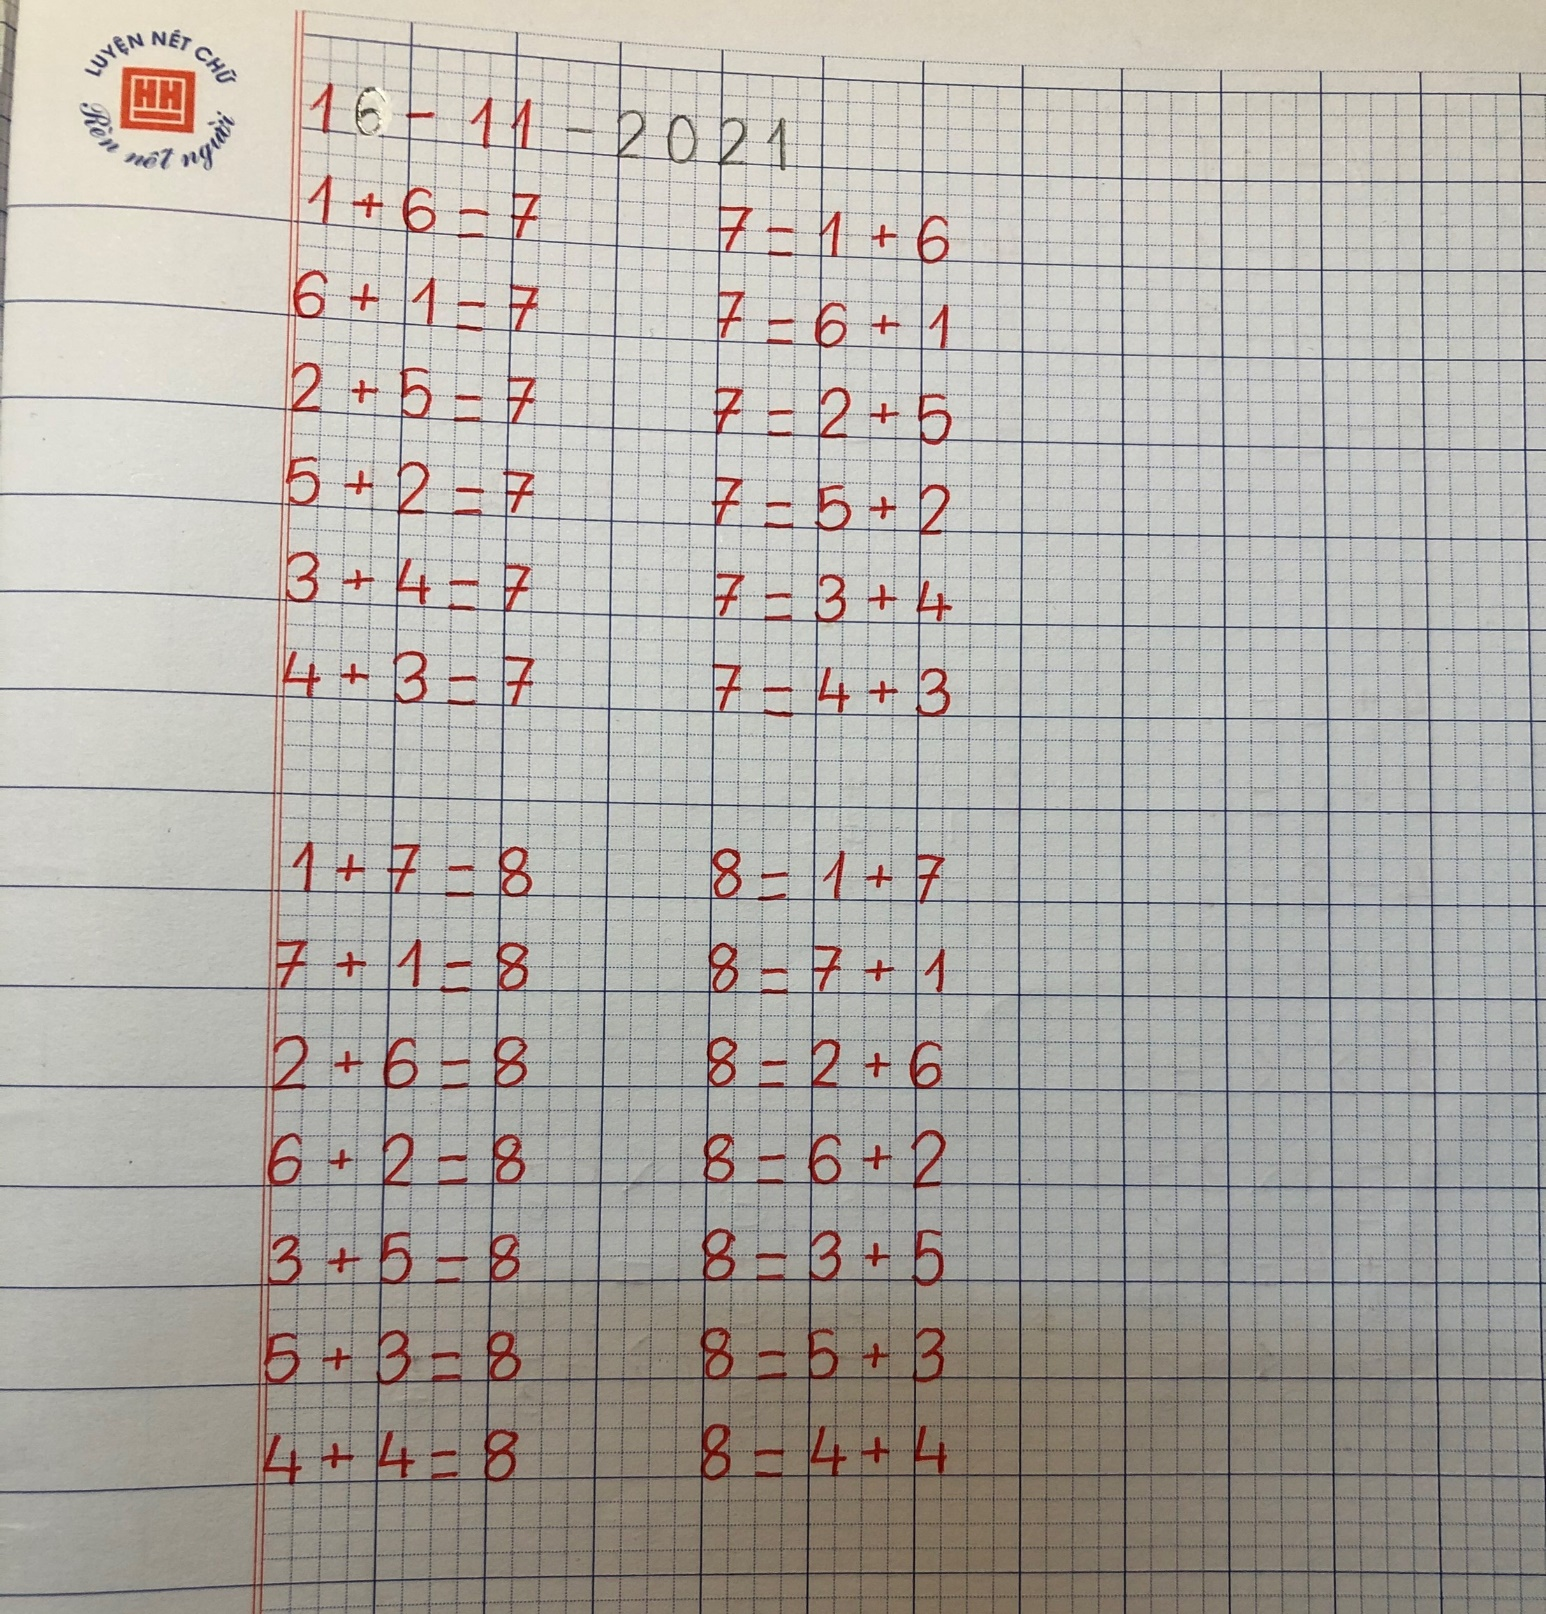 LUYỆN NÉT CHỮ
HH
Rèn nết người
16 - 11 - 2021
1 + 6 = 7 7 = 1 + 6
6 + 1 = 7 7 = 6 + 1
2 + 5 = 7 7 = 2 + 5
5 + 2 = 7 7 = 5 + 2
3 + 4 = 7 7 = 3 + 4
4 + 3 = 7 7 = 4 + 3
1 + 7 = 8 8 = 1 + 7
7 + 1 = 8 8 = 7 + 1
2 + 6 = 8 8 = 2 + 6
6 + 2 = 8 8 = 6 + 2
3 + 5 = 8 8 = 3 + 5
5 + 3 = 8 8 = 5 + 3
4 + 4 = 8 8 = 4 + 4